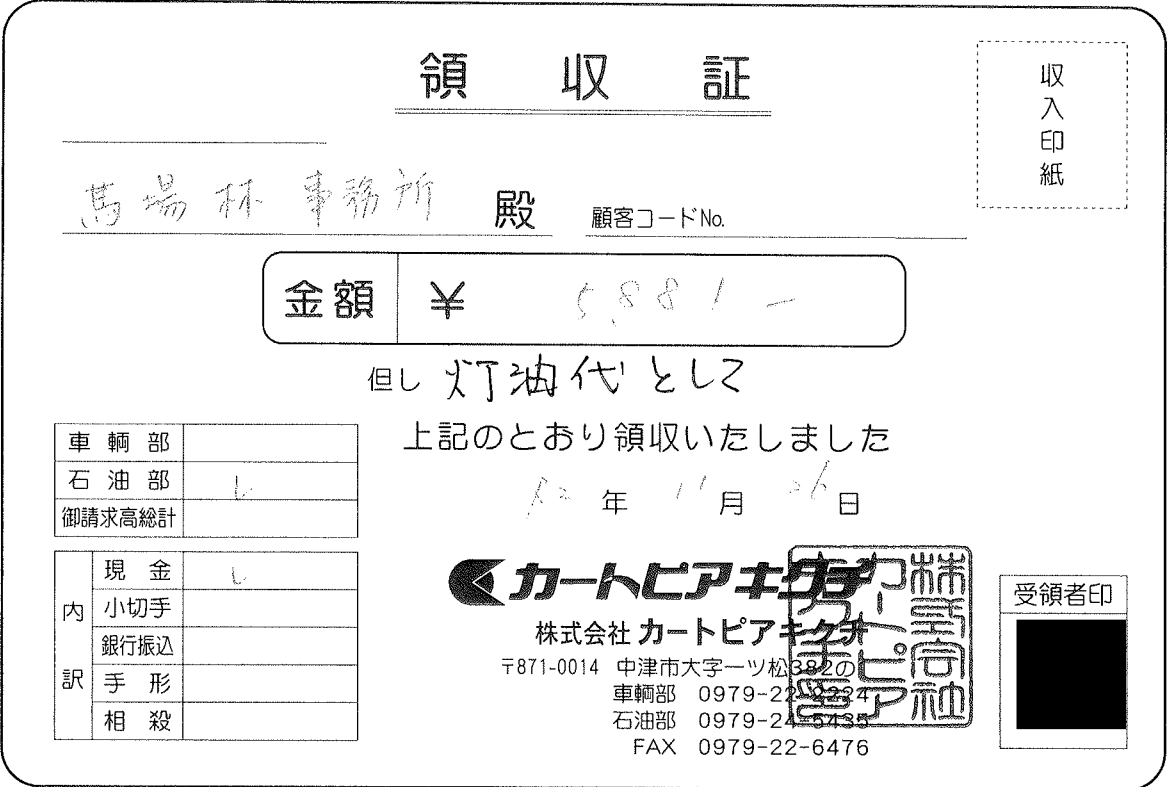 領収証
収入印紙
馬場林事務所 殿 顧客コードNo.
金額 ¥ 5,881-
但し 灯油代として
上記のとおり領収いたしました
年 11月 26日
車輌部
石油部 レ
御請求高総計
内訳
現金 レ
小切手
銀行振込
手形
相殺
カートピアキクチ
株式会社 カートピアキクチ
〒871-0014 中津市大字一ツ松382の
車輌部 0979-22-2224
石油部 0979-24-5435
FAX 0979-22-6476
受領者印